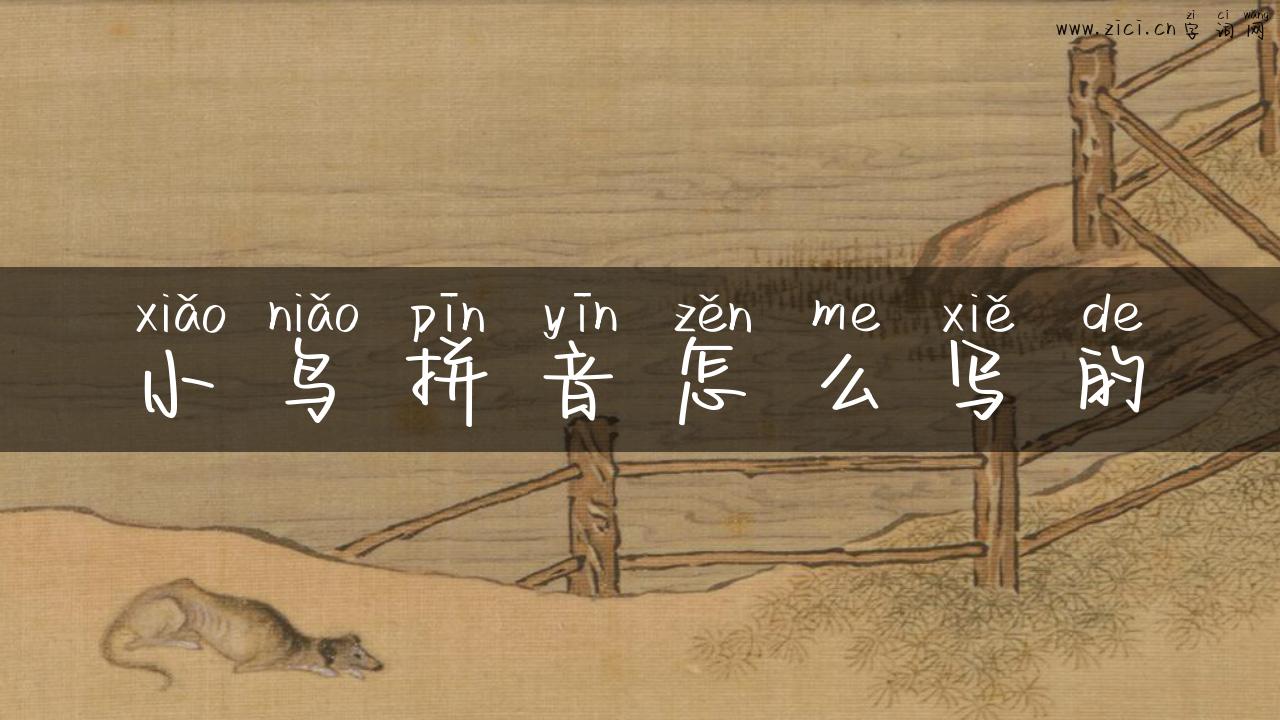 zi ci wang
www.zici.cn字词网
xiǎo niǎo pīn yīn zěn me xiě de
小鸟拼音怎么写的